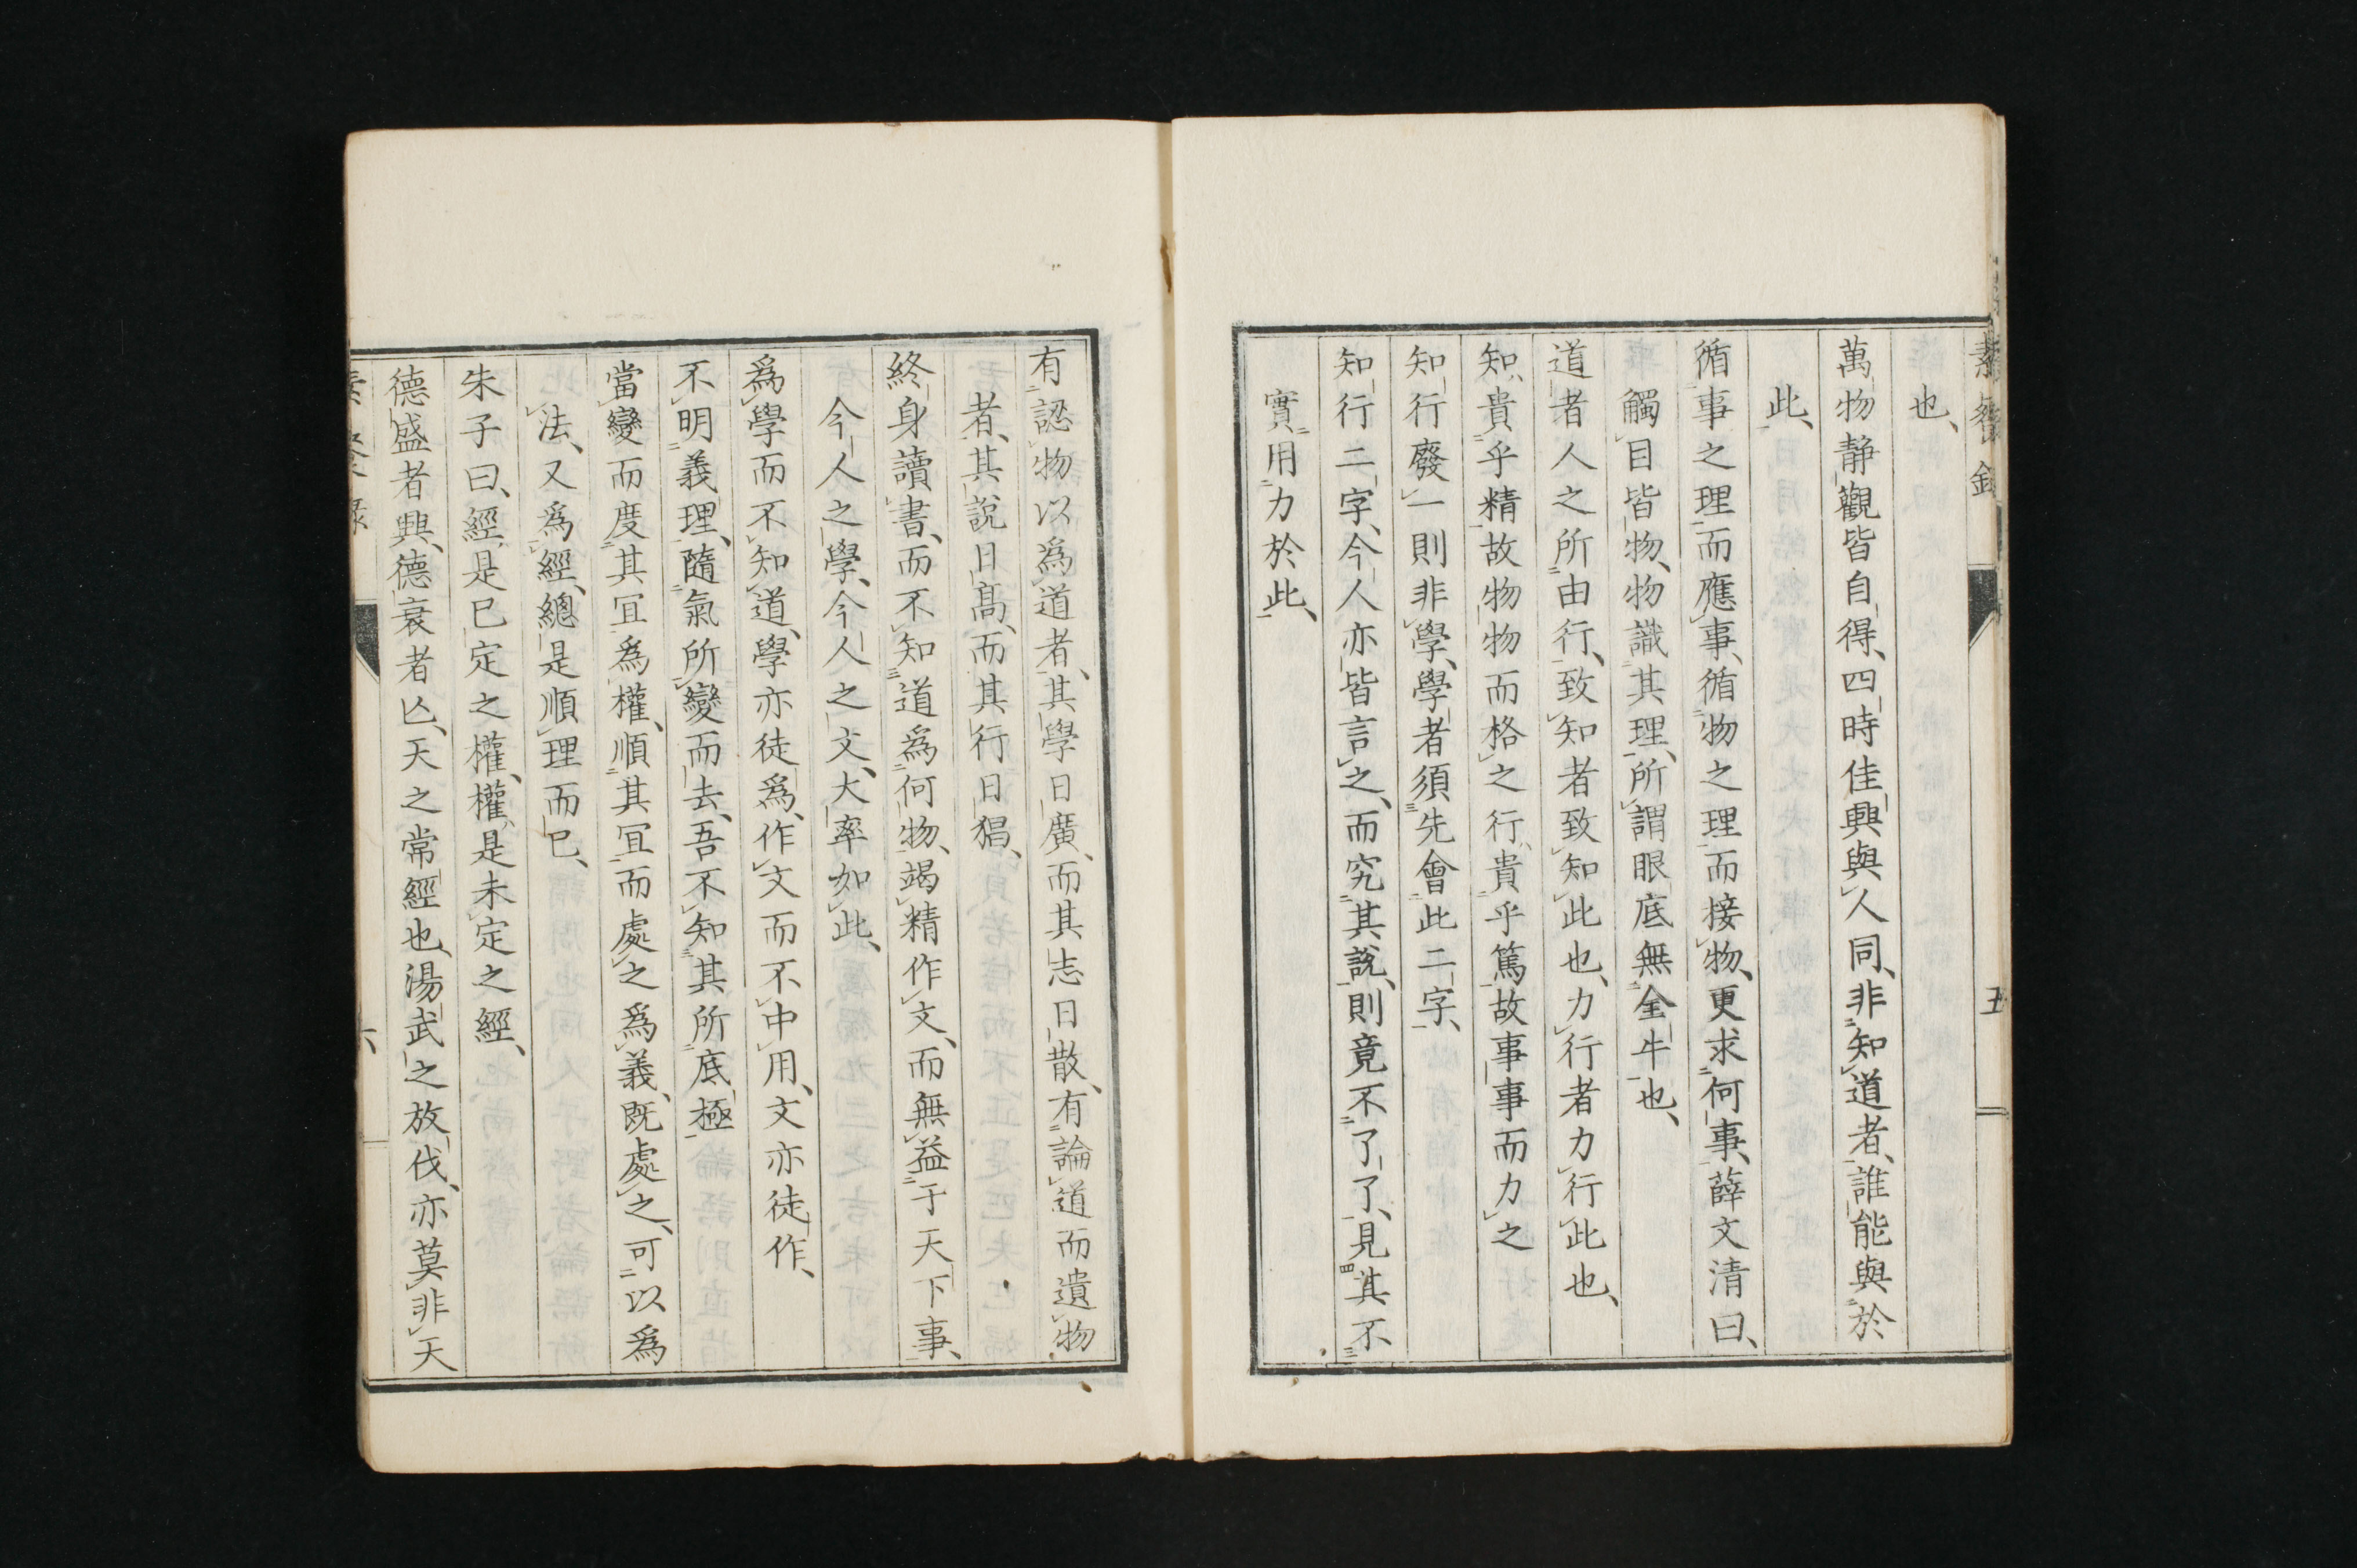 也、
萬物靜觀皆自得、四時佳興與人同、非知道者、誰能與於
此、
循事之理而應事、循物之理而接物、更求何事、薛文清曰、
觸目皆物、物識其理、所謂眼底無全牛也、
道者人之所由行、致知者致知此也、力行者力行此也、
知、貴乎精故物物而格之行、貴乎篤故事事而力之
知行廢一則非學、學者須先會此二字、
知行二字、今人亦皆言之、而究其說、則竟不了了、見其不
實用力於此、
五
有認物以為道者、其學日廣、而其志日散、有論道而遺物
者、其說日高、而其行日猖、
終身讀書、而不知道為何物、竭精作文、而無益于天下事、
今人之學、今人之文、大率如此、
為學而不知道、學亦徒為、作文而不中用、文亦徒作、
不明義理、隨氣所變而去、吾不知其所底極
當變而度其冝為權、順其冝而處之為義、既處之、可以為
法、又為經、總是順理而已、
朱子曰、經是已定之權、權、是未定之經、
德盛者興、德衰者亾、天之常經也、湯武之放伐、亦莫非天